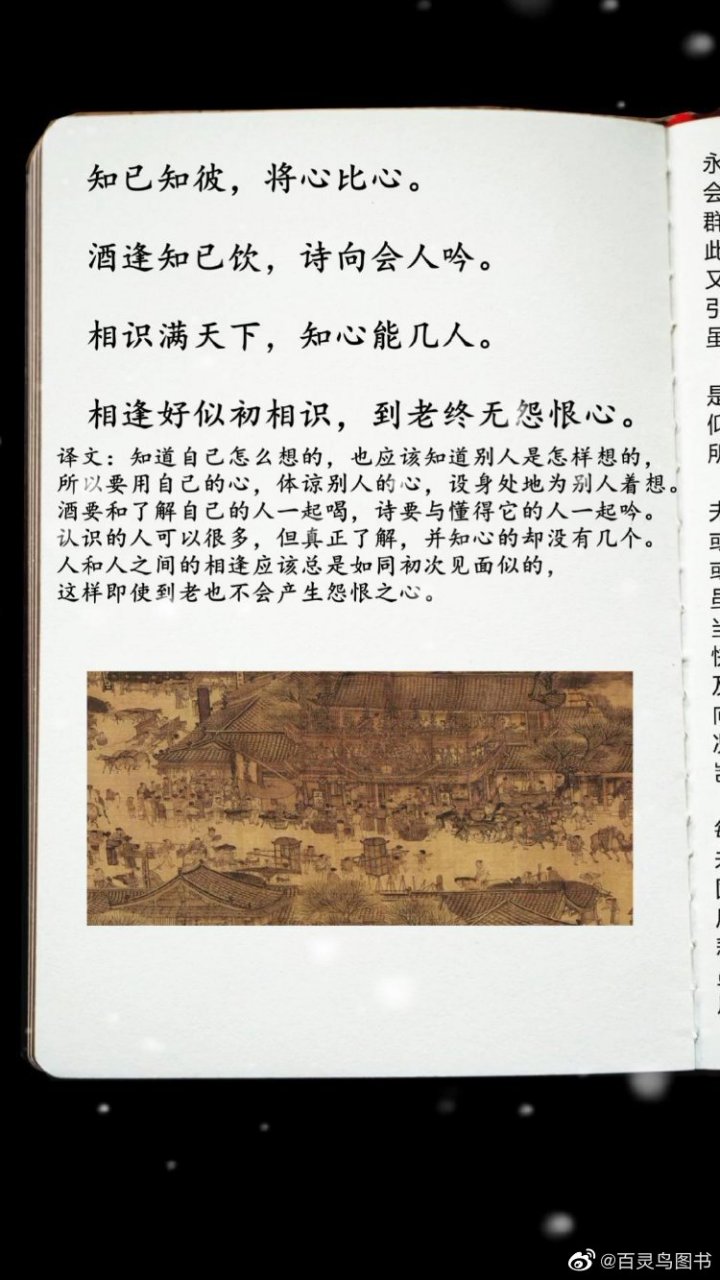 知已知彼，将心比心。
酒逢知已饮，诗向会人吟。
相识满天下，知心能几人。
相逢好似初相识，到老终无怨恨心。
译文：知道自己怎么想的，也应该知道别人是怎样想的，
所以要用自己的心，体谅别人的心，设身处地为别人着想。
酒要和了解自己的人一起喝，诗要与懂得它的人一起吟。
认识的人可以很多，但真正了解，并知心的却没有几个。
人和人之间的相逢应该总是如同初次见面似的，
这样即使到老也不会产生怨恨之心。
永
会
群
此
又
引
虽
是
所
@百灵鸟图书